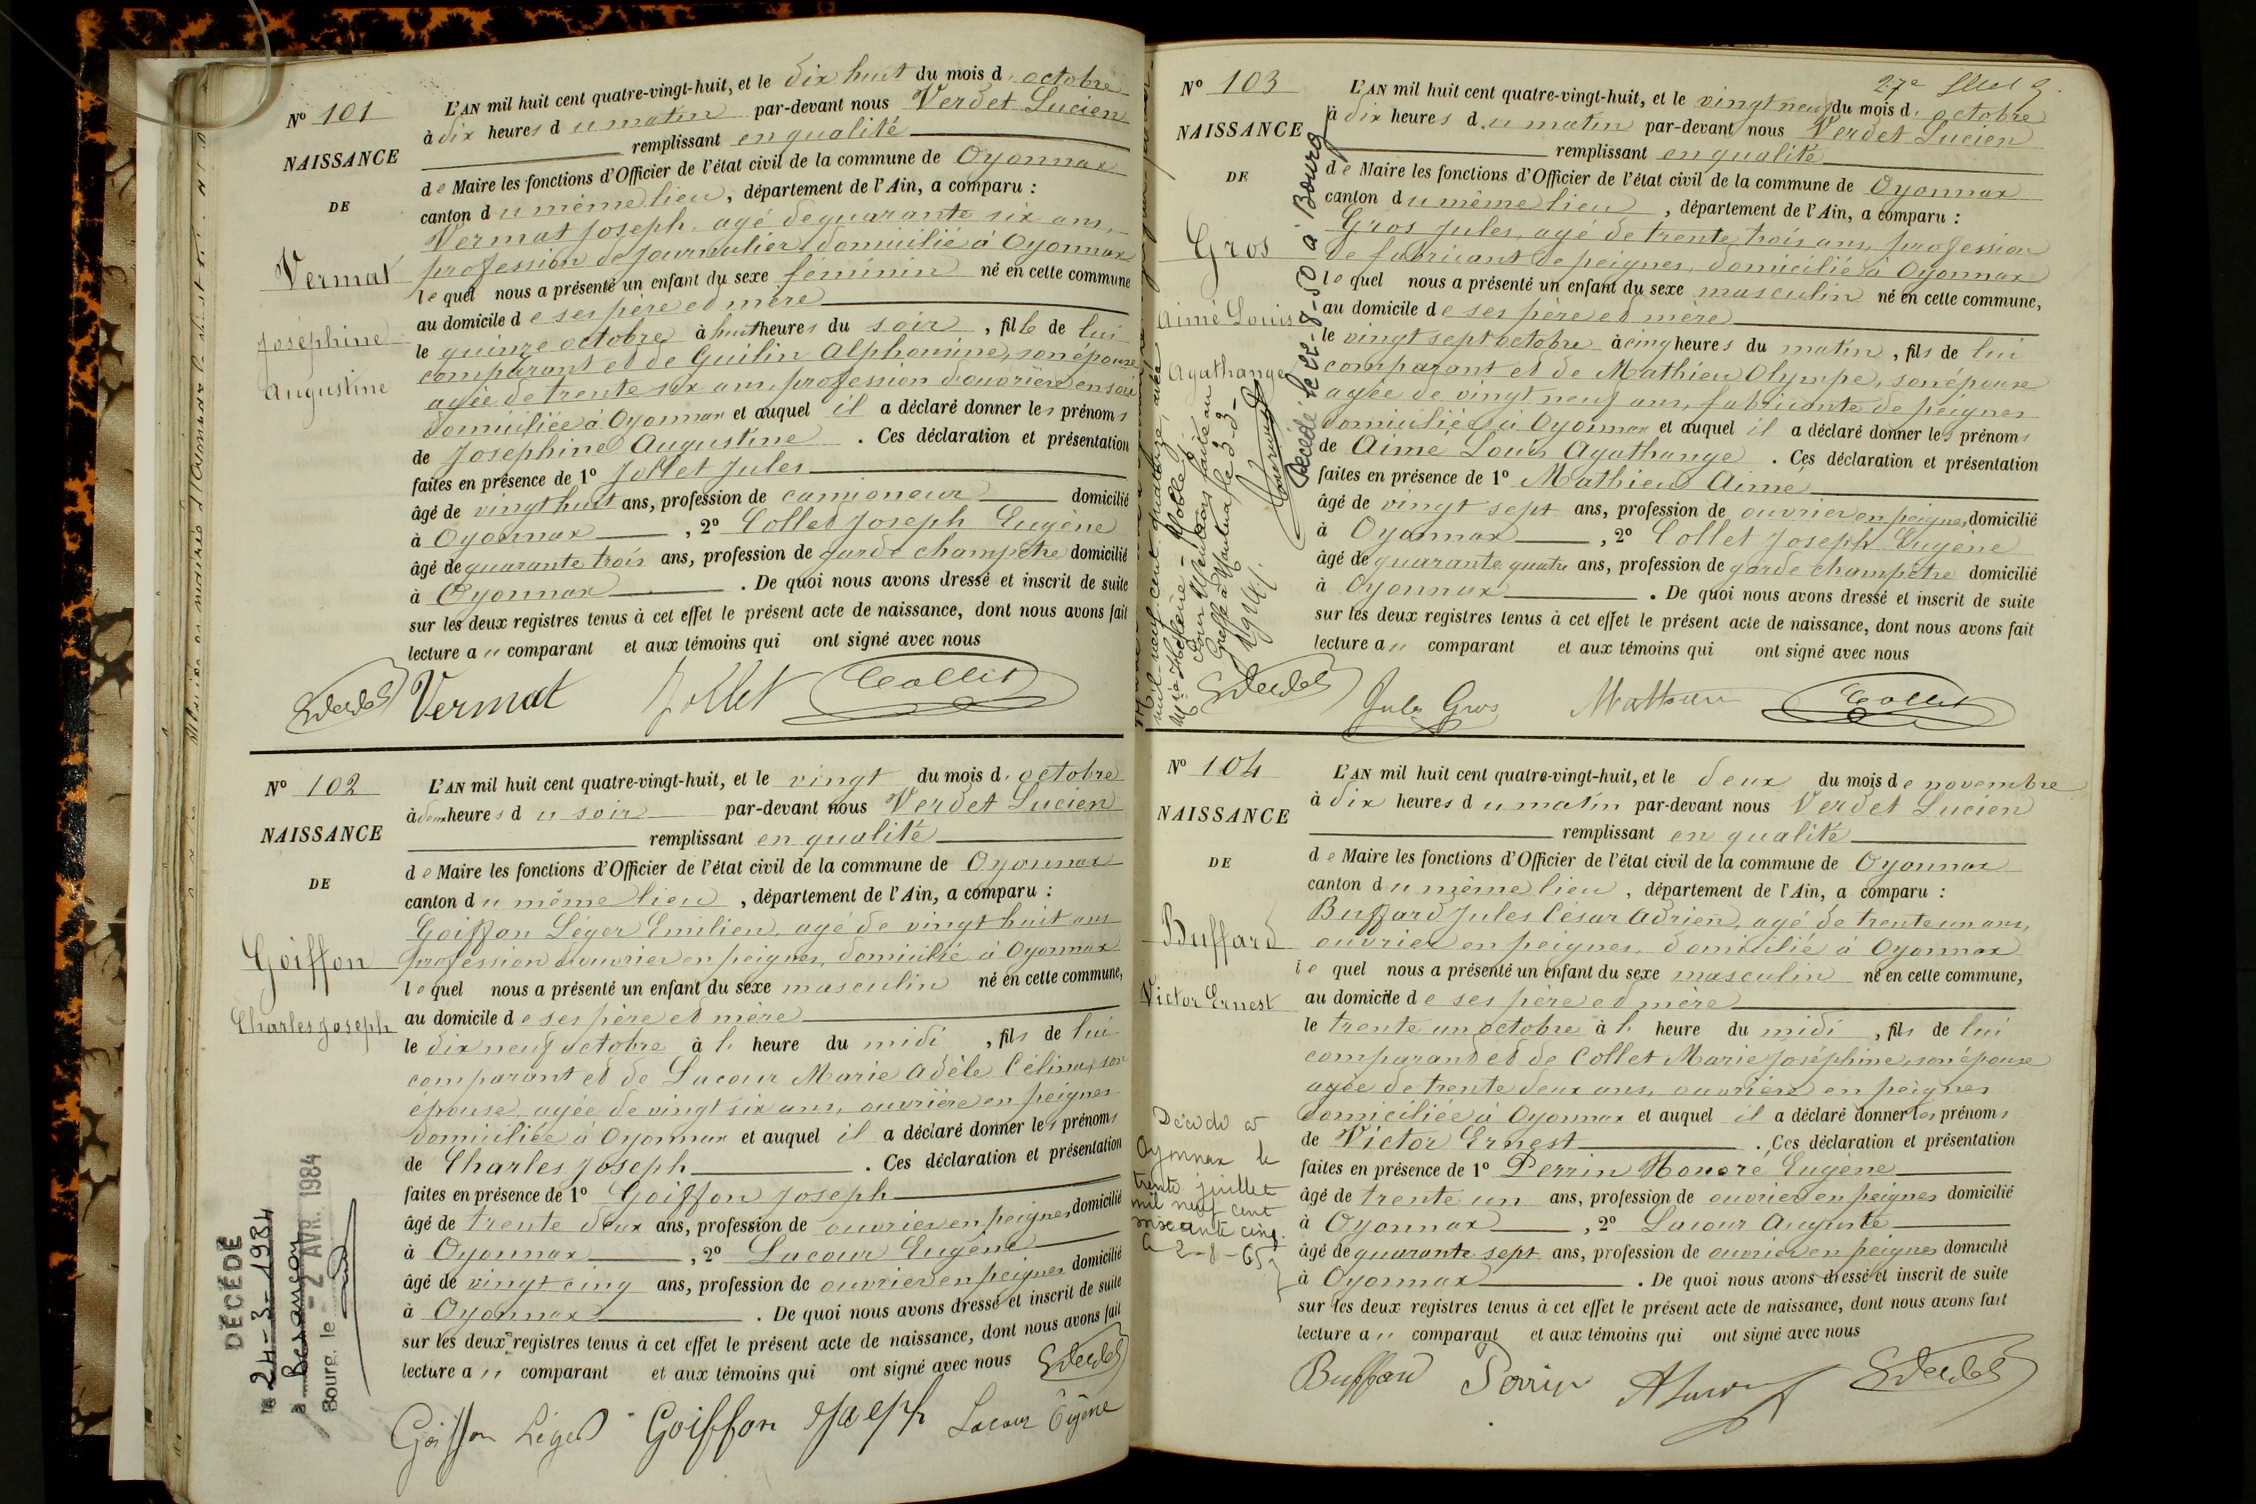 Nº 101
NAISSANCE
DE
Vermat
Joséphine
Augustine
L'AN mil huit cent quatre-vingt-huit, et le dix huit du mois d'octobre
à dix heures du matin par-devant nous Verdet Lucien
remplissant en qualité
de Maire les fonctions d'Officier de l'état civil de la commune de Oyonnax
canton du même lieu, département de l'Ain, a comparu :
Vermat Joseph, agé de quarante six ans,
profession de journalier, domicilié à Oyonnax
lequel nous a présenté un enfant du sexe féminin né en cette commune
au domicile de ses père et mère
le quinze octobre à huit heures du soir, fille de lui
comparant et de Guilin Alphonsine, son épouse
agée de trente six ans, profession d'ouvrière en soie
domiciliée à Oyonnax et auquel il a déclaré donner les prénoms
de Joséphine Augustine. Ces déclaration et présentation
faites en présence de 1º Jollet Jules
âgé de vingt huit ans, profession de camioneur domicilié
à Oyonnax, 2º Collet Joseph Eugène
âgé de quarante trois ans, profession de garde champêtre domicilié
à Oyonnax. De quoi nous avons dressé et inscrit de suite
sur les deux registres tenus à cet effet le présent acte de naissance, dont nous avons fait
lecture au comparant et aux témoins qui ont signé avec nous
Verdet Vermat Jollet Collet
Nº 102
NAISSANCE
DE
Goiffon
Charles Joseph
DÉCÉDÉ
le 24-3-1984
à Besançon
Bourg, le - 2 AVR. 1984
L'AN mil huit cent quatre-vingt-huit, et le vingt du mois d'octobre
à deux heures du soir par-devant nous Verdet Lucien
remplissant en qualité
de Maire les fonctions d'Officier de l'état civil de la commune de Oyonnax
canton du même lieu, département de l'Ain, a comparu :
Goiffon Léger Emilien, agé de vingt huit ans
profession d'ouvrier en peignes, domicilié à Oyonnax
lequel nous a présenté un enfant du sexe masculin né en cette commune,
au domicile de ses père et mère
le dix neuf octobre à l' heure du midi, fils de lui
comparant et de Lacour Marie Adèle Célina, son
épouse, agée de vingt six ans, ouvrière en peignes
domiciliée à Oyonnax et auquel il a déclaré donner les prénoms
de Charles Joseph. Ces déclaration et présentation
faites en présence de 1º Goiffon Joseph
âgé de trente deux ans, profession de ouvrier en peignes domicilié
à Oyonnax, 2º Lacour Eugène
âgé de vingt cinq ans, profession de ouvrier en peignes domicilié
à Oyonnax. De quoi nous avons dressé et inscrit de suite
sur les deux registres tenus à cet effet le présent acte de naissance, dont nous avons fait
lecture au comparant et aux témoins qui ont signé avec nous Verdet
Goiffon Léger Goiffon Joseph Lacour Eugène
27e
Nº 103
NAISSANCE
DE
Gros
Aimé Louis
Agathange
Décédé le 22-8-50 à Bourg
L'AN mil huit cent quatre-vingt-huit, et le vingt neuf du mois d'octobre
à dix heures du matin par-devant nous Verdet Lucien
remplissant en qualité
de Maire les fonctions d'Officier de l'état civil de la commune de Oyonnax
canton du même lieu, département de l'Ain, a comparu :
Gros Jules, agé de trente trois ans, profession
de fabricant de peignes, domicilié à Oyonnax
lequel nous a présenté un enfant du sexe masculin né en cette commune,
au domicile de ses père et mère
le vingt sept octobre à cinq heures du matin, fils de lui
comparant et de Mathieu Olympe, son épouse
agée de vingt neuf ans, fabricante de peignes
domiciliée à Oyonnax et auquel il a déclaré donner les prénoms
de Aimé Louis Agathange. Ces déclaration et présentation
faites en présence de 1º Mathieu Aimé
âgé de vingt sept ans, profession de ouvrier en peignes domicilié
à Oyonnax, 2º Collet Joseph Eugène
âgé de quarante quatre ans, profession de garde champêtre domicilié
à Oyonnax. De quoi nous avons dressé et inscrit de suite
sur les deux registres tenus à cet effet le présent acte de naissance, dont nous avons fait
lecture au comparant et aux témoins qui ont signé avec nous
Verdet Jules Gros Mathieu Collet
Nº 104
NAISSANCE
DE
Buffard
Victor Ernest
Décédé à
Oyonnax le
trente juillet
mil neuf cent
soixante cinq.
le 2-8-65
L'AN mil huit cent quatre-vingt-huit, et le deux du mois de novembre
à dix heures du matin par-devant nous Verdet Lucien
remplissant en qualité
de Maire les fonctions d'Officier de l'état civil de la commune de Oyonnax
canton du même lieu, département de l'Ain, a comparu :
Buffard Jules César Adrien, agé de trente un ans,
ouvrier en peignes, domicilié à Oyonnax
lequel nous a présenté un enfant du sexe masculin né en cette commune,
au domicile de ses père et mère
le trente un octobre à l' heure du midi, fils de lui
comparant et de Collet Marie Joséphine, son épouse
agée de trente deux ans, ouvrière en peignes
domiciliée à Oyonnax et auquel il a déclaré donner les prénoms
de Victor Ernest. Ces déclaration et présentation
faites en présence de 1º Perrin Honoré Eugène
âgé de trente un ans, profession de ouvrier en peignes domicilié
à Oyonnax, 2º Lacour Auguste
âgé de quarante sept ans, profession de ouvrier en peignes domicilié
à Oyonnax. De quoi nous avons dressé et inscrit de suite
sur les deux registres tenus à cet effet le présent acte de naissance, dont nous avons fait
lecture au comparant et aux témoins qui ont signé avec nous
Buffard Perrin Verdet